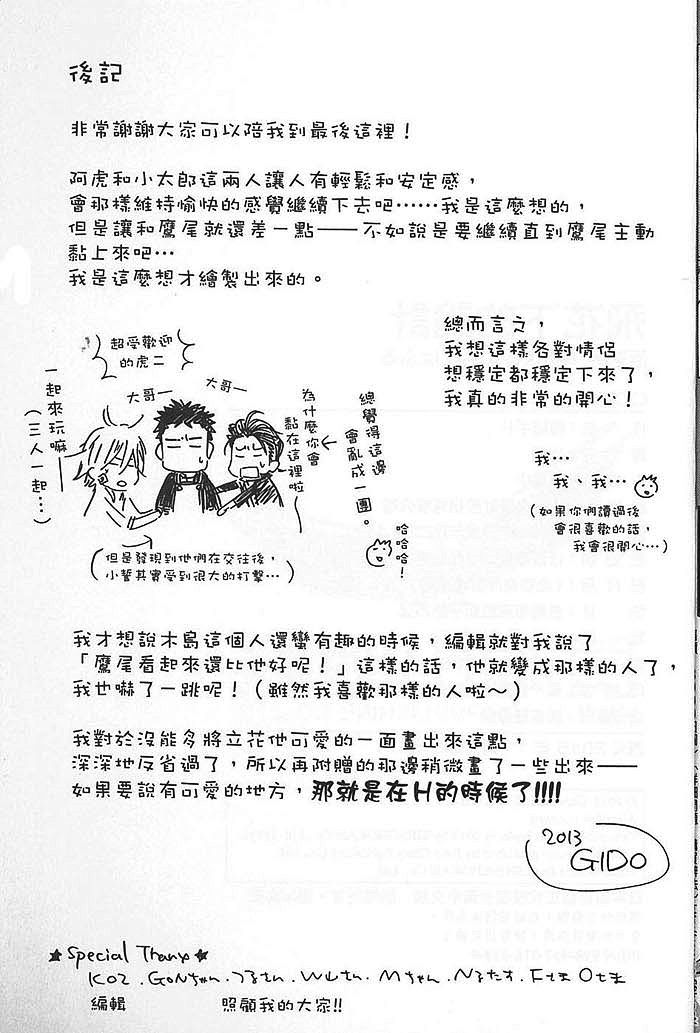 後記
非常謝謝大家可以陪我到最後這裡！
阿虎和小太郎這兩人讓人有輕鬆和安定感，
會那樣維持愉快的感覺繼續下去吧……我是這麼想的，
但是讓和鷹尾就還差一點——不如說是要繼續直到鷹尾主動
黏上來吧…
我是這麼想才繪製出來的。
總而言之，
我想這樣各對情侶
想穩定都穩定下來了，
我真的非常的開心！
超受歡迎
的虎二
一起來玩嘛
（三人一起…）
大哥—
大哥—
為什麼你會
黏在這裡啦
總覺得這邊
會亂成一團。
哈哈哈！
但是發現到他們在交往後，
小誓其實受到很大的打擊…
我…
我、我…
（如果你們讀過後
會很喜歡的話，
我會很開心…）
我才想說木島這個人還蠻有趣的時候，編輯就對我說了
「鷹尾看起來還比他好呢！」這樣的話，他就變成那樣的人了，
我也嚇了一跳呢！（雖然我喜歡那樣的人啦～）
我對於沒能多將立花他可愛的一面畫出來這點，
深深地反省過了，所以再附贈的那邊稍微畫了一些出來——
如果要說有可愛的地方，那就是在H的時候了!!!!
2013
GIDO
★Special Thanx★
KOZ . GoNちゃん . つるさん . Wしさん . Mちゃん . Nるたす . Fさま Oさま
編輯 照顧我的大家!!